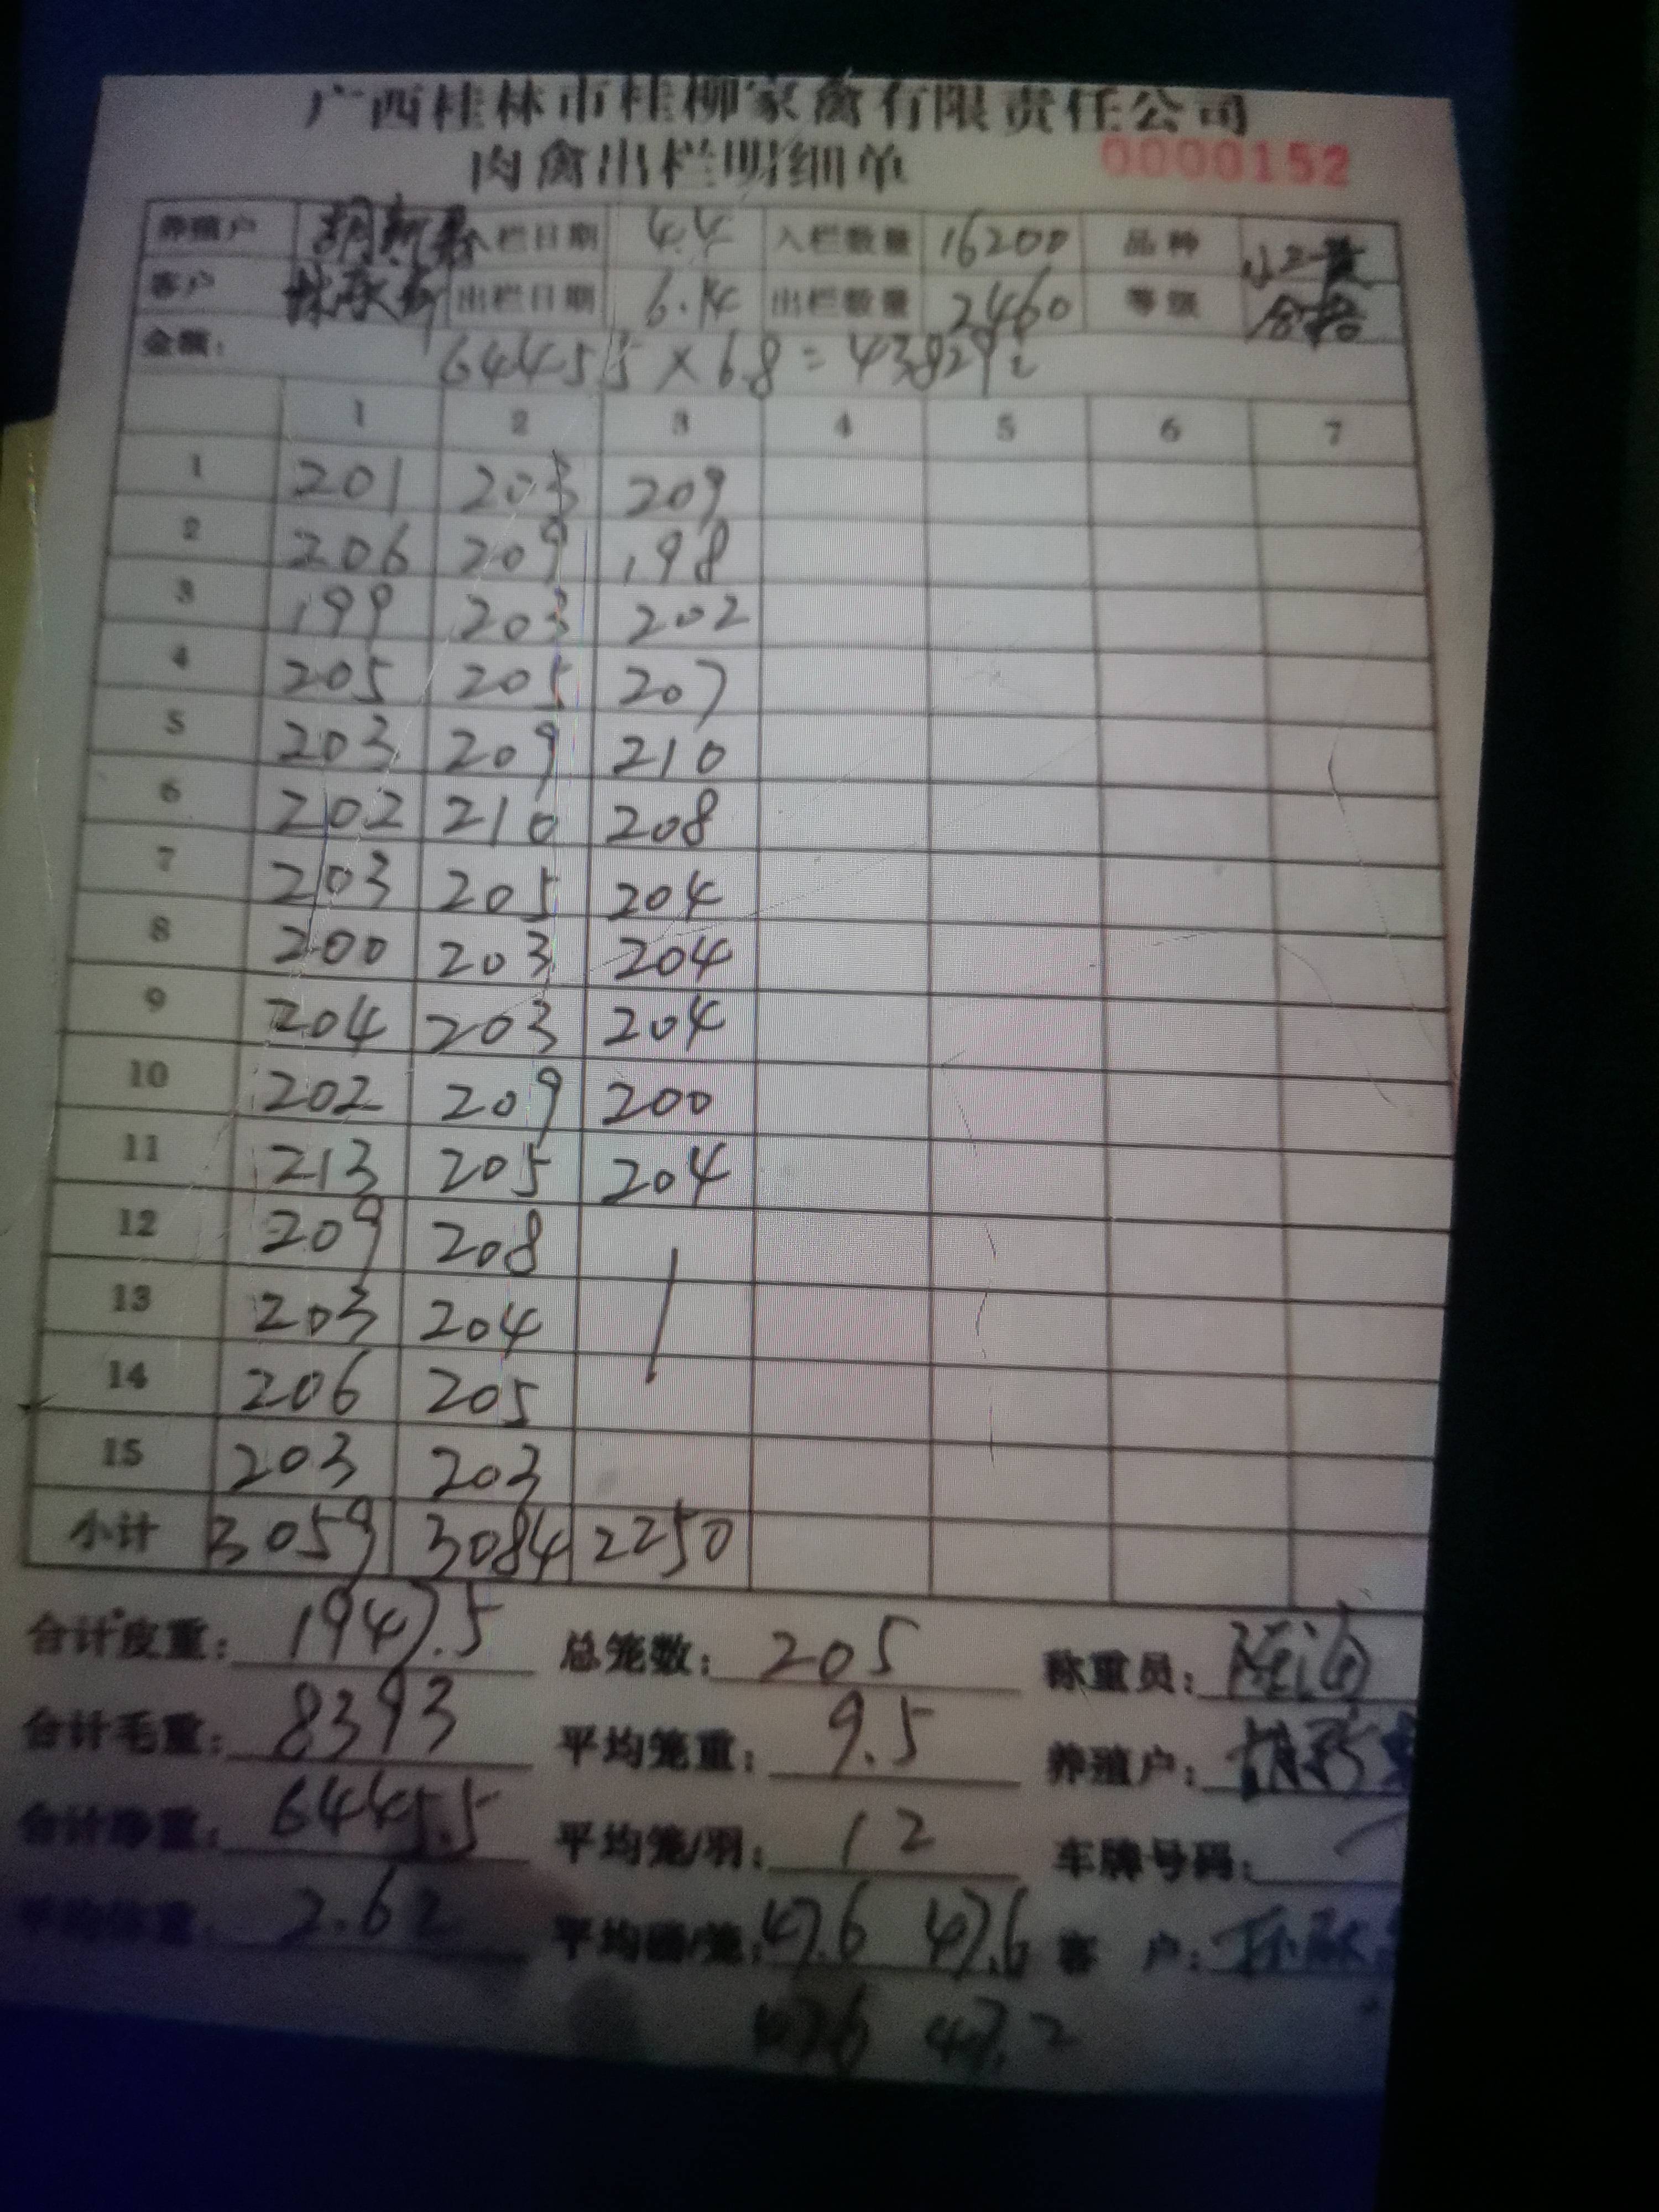 广西桂林市桂柳家禽有限责任公司
肉禽出栏明细单 0000152
养殖户 入栏日期 4.4 入栏数量 16200 品种
客户 出栏日期 6.14 出栏数量 2460 等级 合格
金额: 6445.5×6.8=43829
1 2 3 4 5 6 7
1 201 203 209
2 206 209 198
3 199 203 202
4 205 205 207
5 203 209 210
6 202 210 208
7 203 205 204
8 200 203 204
9 204 203 204
10 202 209 200
11 213 205 204
12 209 208
13 203 204
14 206 205
15 203 203
小计 3059 3084 2250
合计皮重: 1947.5 总笼数: 205 称重员:
合计毛重: 8393 平均笼重: 9.5 养殖户:
合计净重: 6445.5 平均笼/羽: 12 车牌号码:
平均体重: 2.62 47.6 47.6 客户:
47.6 47.2